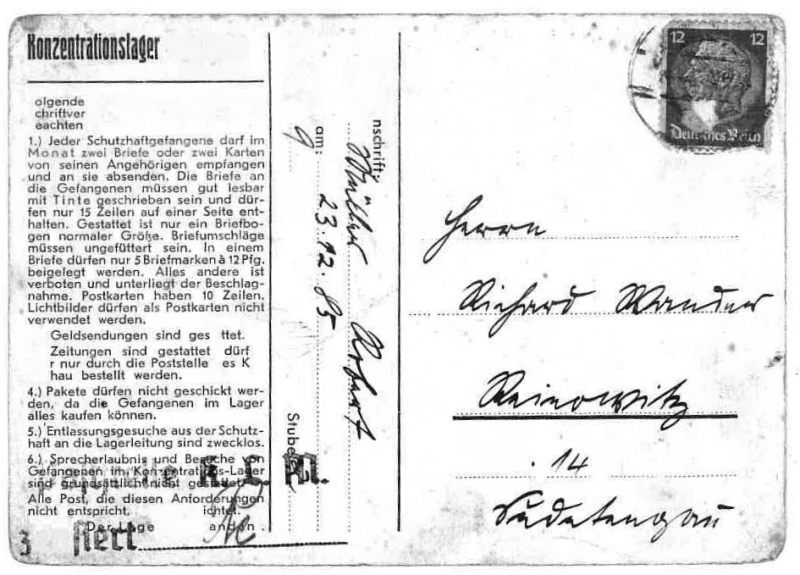 Konzentrationslager
olgende
chriftver
eachten
1.) Jeder Schutzhaftgefangene darf im
Monat zwei Briefe oder zwei Karten
von seinen Angehörigen empfangen
und an sie absenden. Die Briefe an
die Gefangenen müssen gut lesbar
mit Tinte geschrieben sein und dür-
fen nur 15 Zeilen auf einer Seite ent-
halten. Gestattet ist nur ein Briefbo-
gen normaler Größe. Briefumschläge
müssen ungefüttert sein. In einem
Briefe dürfen nur 5 Briefmarken à 12 Pfg.
beigelegt werden. Alles andere ist
verboten und unterliegt der Beschlag-
nahme. Postkarten haben 10 Zeilen.
Lichtbilder dürfen als Postkarten nicht
verwendet werden.
Geldsendungen sind ges tet.
Zeitungen sind gestattet dürf
r nur durch die Poststelle es K
hau bestellt werden.
4.) Pakete dürfen nicht geschickt wer-
den, da die Gefangenen im Lager
alles kaufen können.
5.) Entlassungsgesuche aus der Schutz-
haft an die Lagerleitung sind zwecklos.
6.) Sprecherlaubnis und Besuche von
Gefangenen im Konzentrations-Lager
sind grundsätzlich nicht gestattet.
Alle Post, die diesen Anforderungen
nicht entspricht, ichtet.
Der Lage andan
3 fiert
nschrift:
Müller Robert
am: 23.12.85
9
Stube
12 12
Deutsches Reich
Herrn
Richard Wander
Reinowitz
14
Sudetengau